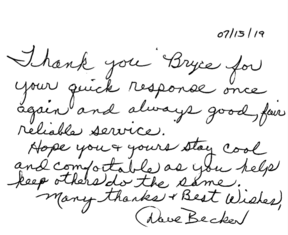 07/13/19
Thank you Bryce for
your quick response once
again and always good, fair
reliable service.
Hope you & yours stay cool
and comfortable as you help
keep others do the same.
Many thanks & Best Wishes,
Dave Becker